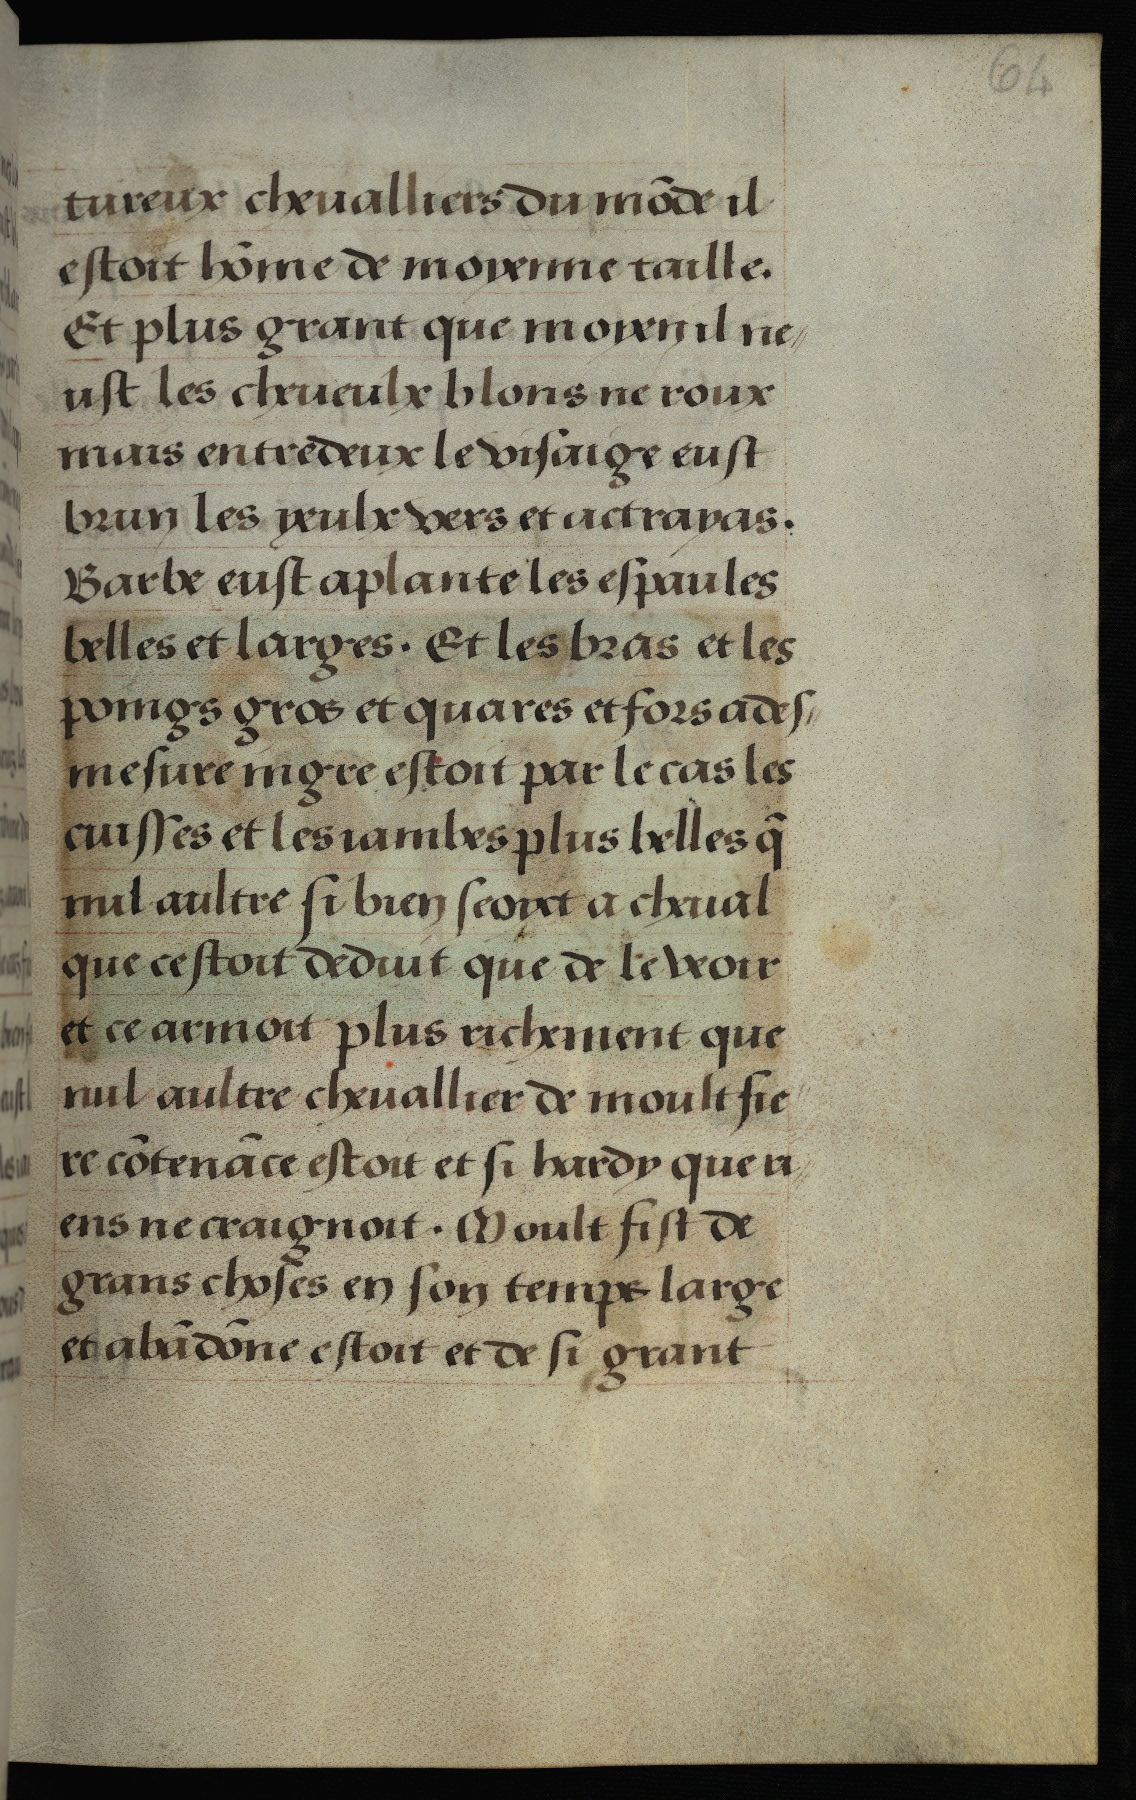 64
tureux chevalliers du mōde il
estoit hōme de moyenne taille.
Et plus grant que moyen il ne//
ust les cheueulx blons ne roux
mais entredeux le visaige eust
brun les yeulx vers et actrayās.
Barbe eust aplante les espaules
belles et larges. Et les bras et les
poings gros et quares et fors a des//
mesure nigre estoit par le cas les
cuisses et les iambes plus belles q̄
nul aultre si bien seoyet a cheual
que cestoit deduit que de le veoir
et ce armoit plus richement que
nul aultre cheuallier de moult fie//
re cōtenāce estoit et si hardy que ri//
ens ne craignoit. Moult fist de
grans choses en son temps large
et abādōne estoit et de si grant